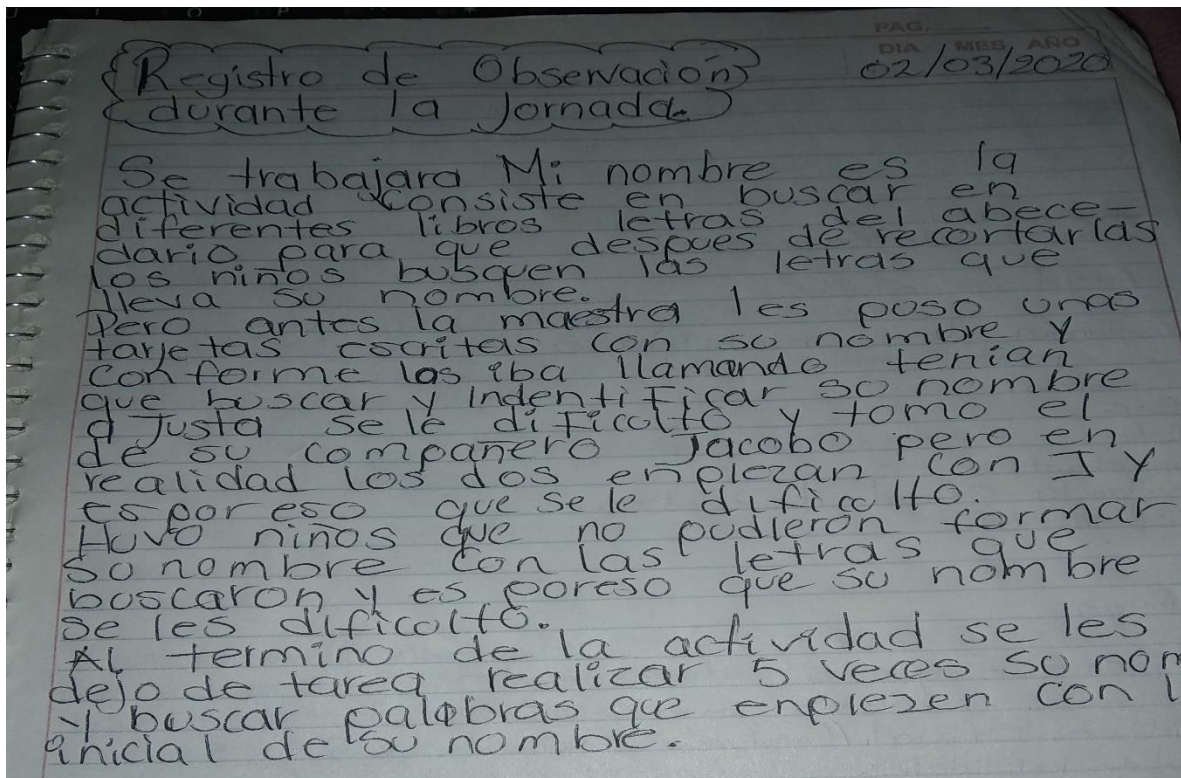 PAG.
DIA MES AÑO
02/03/2020
Registro de Observación
durante la Jornada.
Se trabajara Mi nombre es la
actividad consiste en buscar en
diferentes libros letras del abece-
dario para que despues de recortarlas
los niños busquen las letras que
lleva su nombre.
Pero antes la maestra les puso unas
tarjetas escritas con su nombre y
conforme los iba llamando tenian
que buscar y indentificar su nombre
a Justa se le dificulto y tomo el
de su compañero Jacobo pero en
realidad los dos enplezan con J y
es por eso que se le dificulto.
Huvo niños que no pudieron formar
su nombre con las letras que
buscaron y es poreso que su nombre
se les dificulto.
Al termino de la actividad se les
dejo de tarea realizar 5 veces su nom
y buscar palabras que enplezen con l
inicial de su nombre.